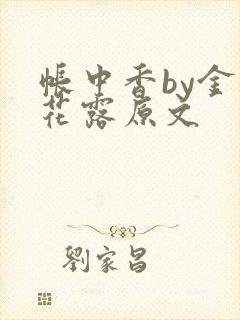 帐中香by金
花露原文
劉家昌